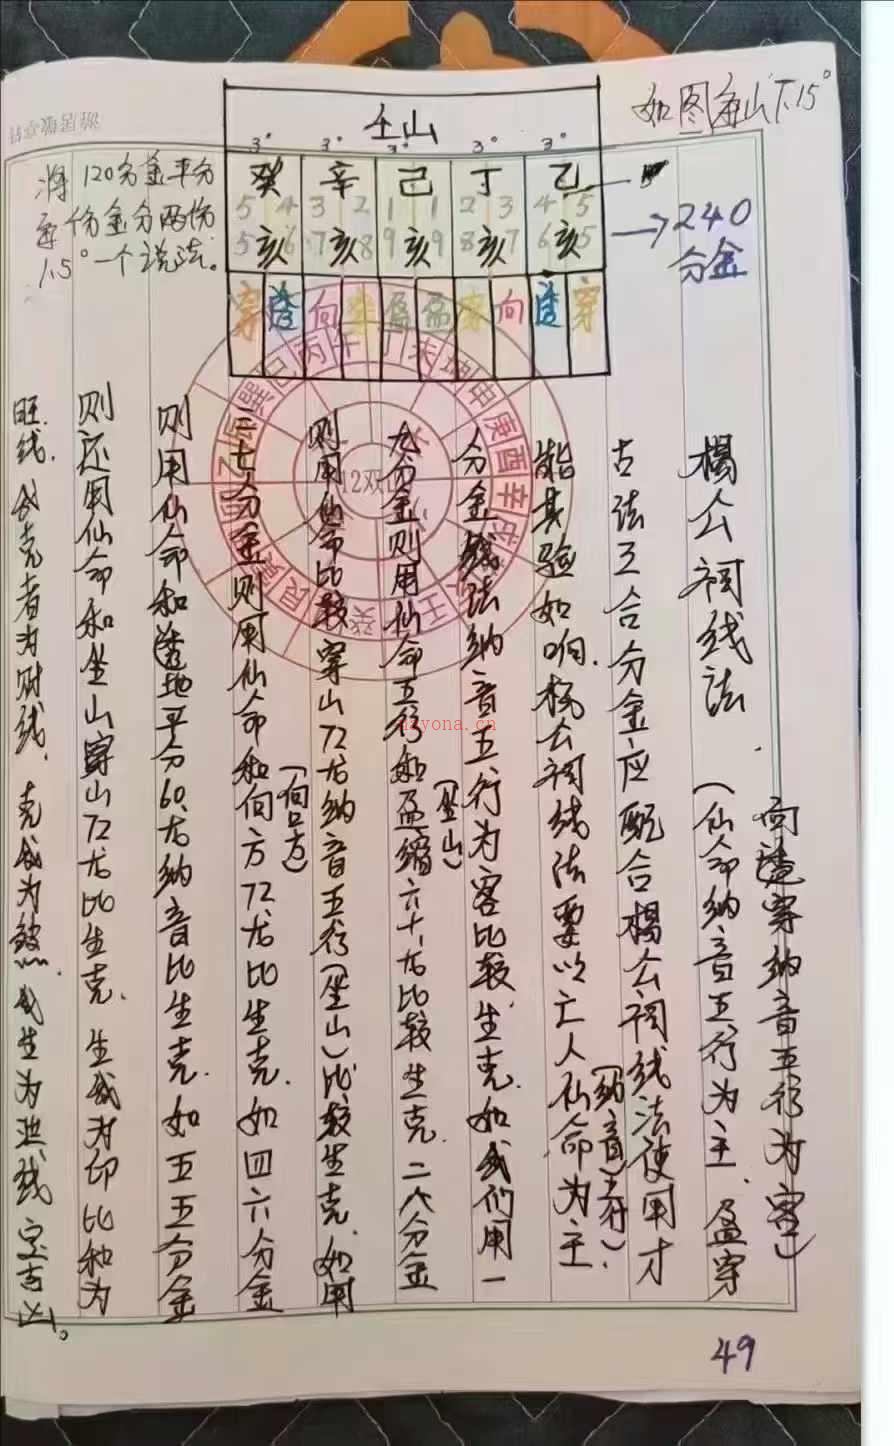 如图每山下15°
壬山
3° 3° 3° 3° 3°
癸 辛 己 丁 乙
5 4 3 2 1 1 2 3 4 5
亥 亥 亥 亥 亥
5 6 7 8 9 9 8 7 6 5
穿 透 向 穿 盈 盈 穿 向 透 穿
→240
分金
将120分金平分
每份金分两份
1.5°一个说法。
杨公祠线法.(仙命纳音五行为主.盈穿
向透穿纳音五行为客)
古法工合分金应配合杨公祠线法使用才
能其验如响.杨公祠线法要以亡人仙命为主
(纳音五行).
分金线法纳音五行为客比较生克.如我们用一
九分金则用仙命五行和盈缩六十龙比较生克.二八分金
(坐山)
则用仙命比较穿山72龙纳音五行(坐山)比较生克.如用
三七分金则用仙命和向方72龙比生克.如四六分金
(向口方)
则用仙命和透地平分60龙纳音比生克.如五五分金
则还用仙命和坐山穿山72龙比生克.生我为印比和为
旺线.我克者为财线.克我为煞.我生为泄线定吉凶。
12双山
丙 午 丁 未 坤 申 庚 酉 辛 戌
壬 癸 艮
巽 巳
nayona.cn
49